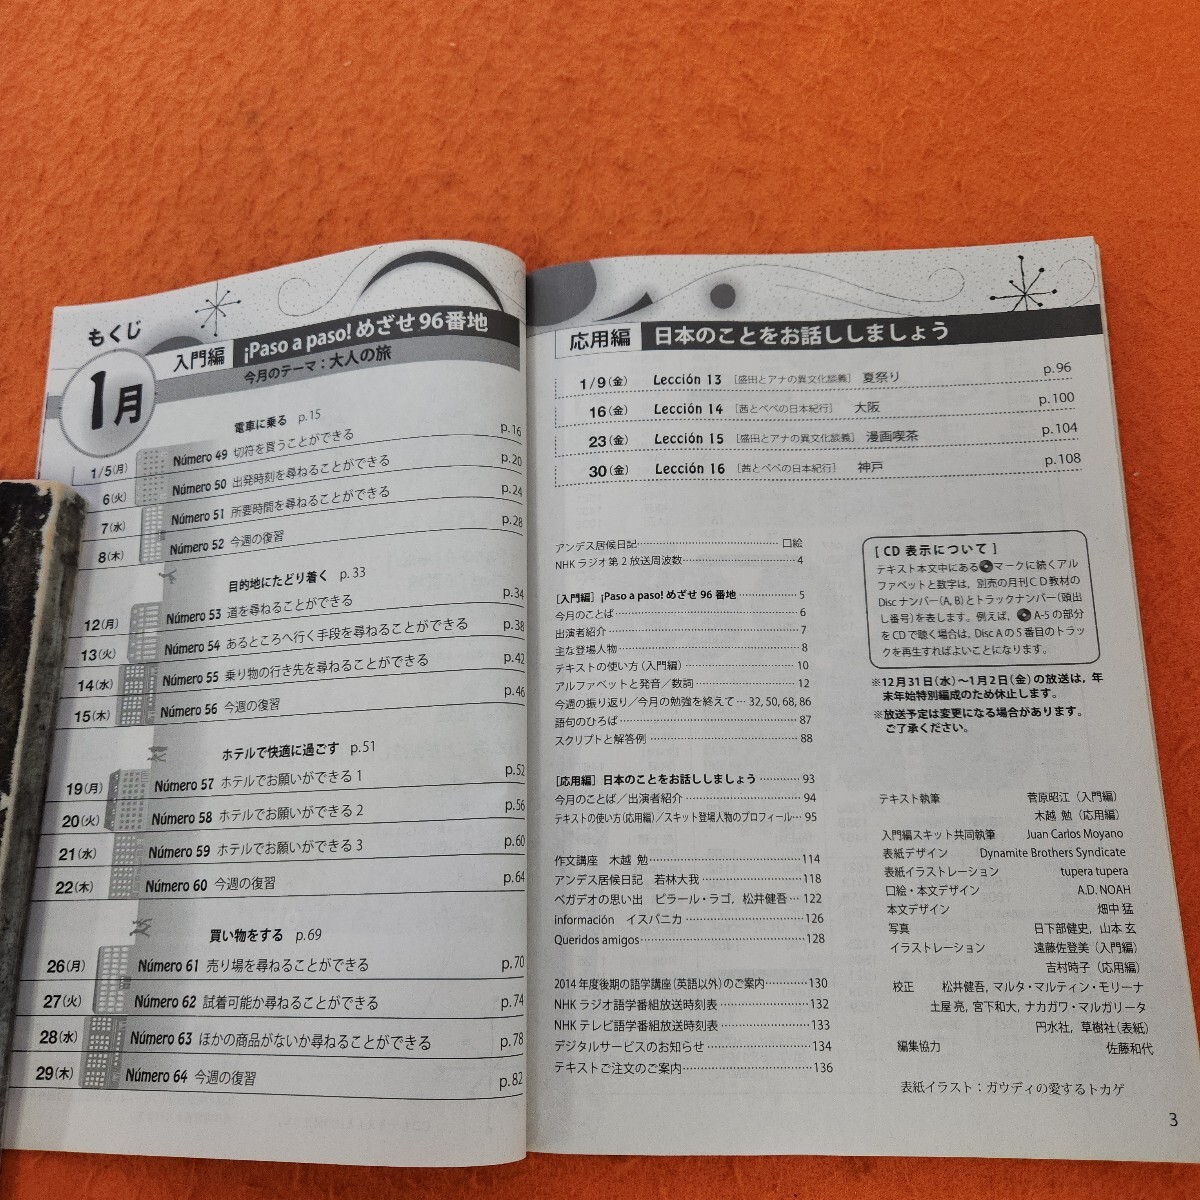 もくじ
1月
入門編 ¡Paso a paso! めざせ 96番地
今月のテーマ：大人の旅
電車に乗る p.15
1/5(月) Número 49 切符を買うことができる p.16
6(火) Número 50 出発時刻を尋ねることができる p.20
7(水) Número 51 所要時間を尋ねることができる p.24
8(木) Número 52 今週の復習 p.28
目的地にたどり着く p.33
12(月) Número 53 道を尋ねることができる p.34
13(火) Número 54 あるところへ行く手段を尋ねることができる p.38
14(水) Número 55 乗り物の行き先を尋ねることができる p.42
15(木) Número 56 今週の復習 p.46
ホテルで快適に過ごす p.51
19(月) Número 57 ホテルでお願いができる 1 p.52
20(火) Número 58 ホテルでお願いができる 2 p.56
21(水) Número 59 ホテルでお願いができる 3 p.60
22(木) Número 60 今週の復習 p.64
買い物をする p.69
26(月) Número 61 売り場を尋ねることができる p.70
27(火) Número 62 試着可能か尋ねることができる p.74
28(水) Número 63 ほかの商品がないか尋ねることができる p.78
29(木) Número 64 今週の復習 p.82
応用編 日本のことをお話ししましょう
1/9(金) Lección 13 [盛田とアナの異文化談義] 夏祭り p.96
16(金) Lección 14 [茜とペペの日本紀行] 大阪 p.100
23(金) Lección 15 [盛田とアナの異文化談義] 漫画喫茶 p.104
30(金) Lección 16 [茜とペペの日本紀行] 神戸 p.108
アンデス居候日記 …… 口絵
NHK ラジオ第 2 放送周波数 …… 4
[入門編] ¡Paso a paso! めざせ 96 番地 …… 5
今月のことば …… 6
出演者紹介 …… 7
主な登場人物 …… 8
テキストの使い方（入門編） …… 10
アルファベットと発音／数詞 …… 12
今週の振り返り／今月の勉強を終えて … 32, 50, 68, 86
語句のひろば …… 87
スクリプトと解答例 …… 88
[応用編] 日本のことをお話ししましょう …… 93
今月のことば／出演者紹介 …… 94
テキストの使い方（応用編）／スキット登場人物のプロフィール … 95
作文講座 木越 勉 …… 114
アンデス居候日記 若林大我 …… 118
ペガデオの思い出 ピラール・ラゴ，松井健吾 … 122
información イスパニカ …… 126
Queridos amigos …… 128
2014 年度後期の語学講座（英語以外）のご案内 …… 130
NHK ラジオ語学番組放送時刻表 …… 132
NHK テレビ語学番組放送時刻表 …… 133
デジタルサービスのお知らせ …… 134
テキストご注文のご案内 …… 136
[ CD 表示について ]
テキスト本文中にあるマークに続くアル
ファベットと数字は，別売の月刊ＣＤ教材の
Disc ナンバー（A, B）とトラックナンバー（頭出
し番号）を表します。例えば， A-5 の部分
をCDで聴く場合は，Disc A の 5 番目のトラッ
クを再生すればよいことになります。
※12月31日（水）～1月2日（金）の放送は，年
末年始特別編成のため休止します。
※放送予定は変更になる場合があります。
ご了承ください。
テキスト執筆 菅原昭江（入門編）
木越 勉（応用編）
入門編スキット共同執筆 Juan Carlos Moyano
表紙デザイン Dynamite Brothers Syndicate
表紙イラストレーション tupera tupera
口絵・本文デザイン A.D. NOAH
本文デザイン 畑中 猛
写真 日下部健史，山本 玄
イラストレーション 遠藤佐登美（入門編）
吉村時子（応用編）
校正 松井健吾，マルタ・マルティン・モリーナ
土屋 亮，宮下和大，ナカガワ・マルガリータ
円水社，草樹社（表紙）
編集協力 佐藤和代
表紙イラスト：ガウディの愛するトカゲ
3